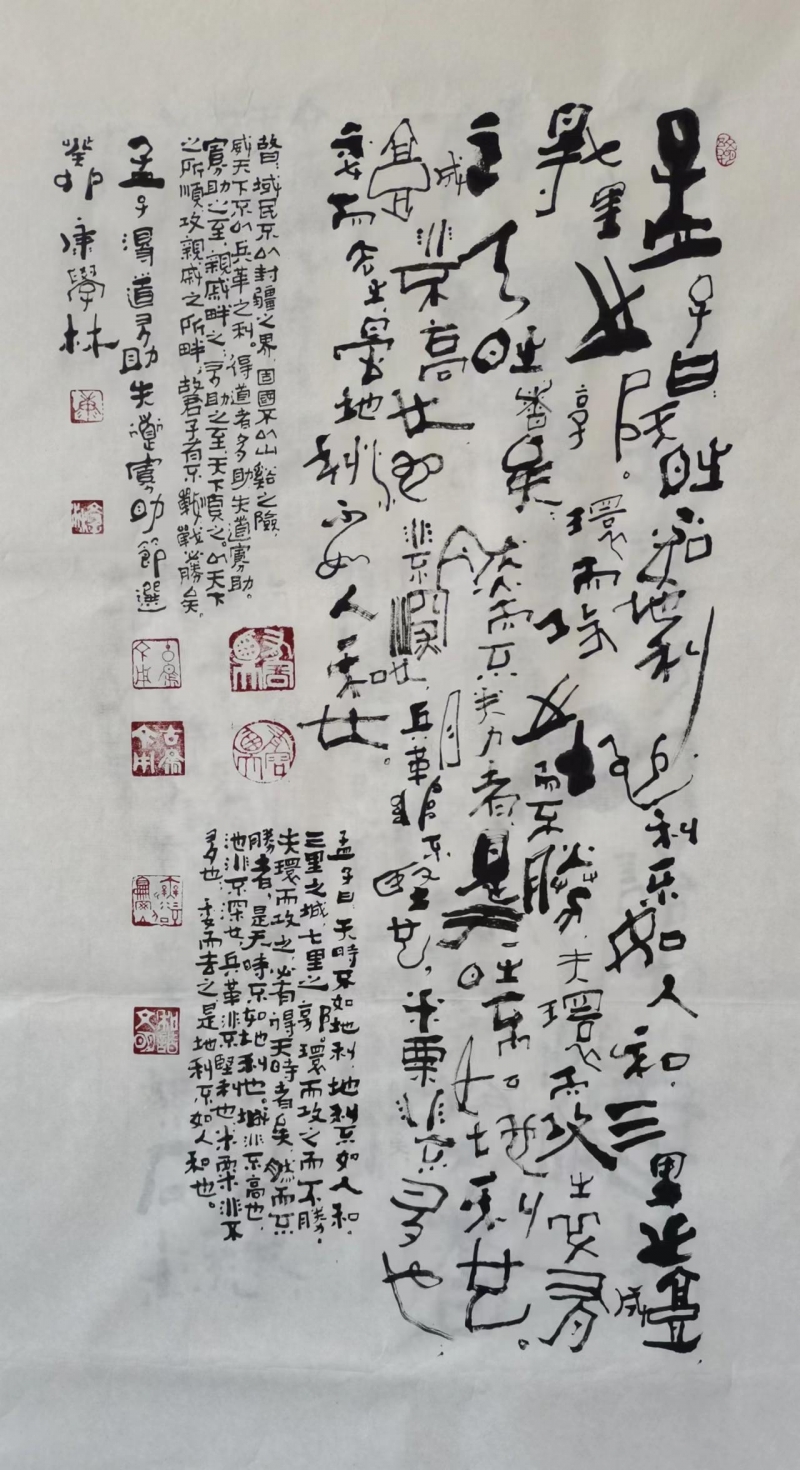 孟子曰天時不如地利地利不如人和三里之城
七里之郭。環而攻之而不勝夫環而攻之必有
得天時者矣然而不勝者是天時不如地利也。
城非不高也池非不深也兵革非不堅也米粟非不多也
委而去之是地利不如人和也。
孟子曰天時不如地利,地利不如人和,
三里之城,七里之郭。環而攻之而不勝,
夫環而攻之,必有得天時者矣,然而不
勝者,是天時不如地利也。城非不高也,
池非不深也,兵革非不堅利也,米粟非不
多也,委而去之是地利不如人和也。
故曰,域民不以封疆之界,固國不以山谿之險,
威天下不以兵革之利,得道者多助失道寡助。
寡助之至,親戚畔之,多助之至天下順之。以天下
之所順攻親戚之所畔,故君子有不戰,戰必勝矣。
孟子得道多助失道寡助節選
癸卯康學林
古為今用